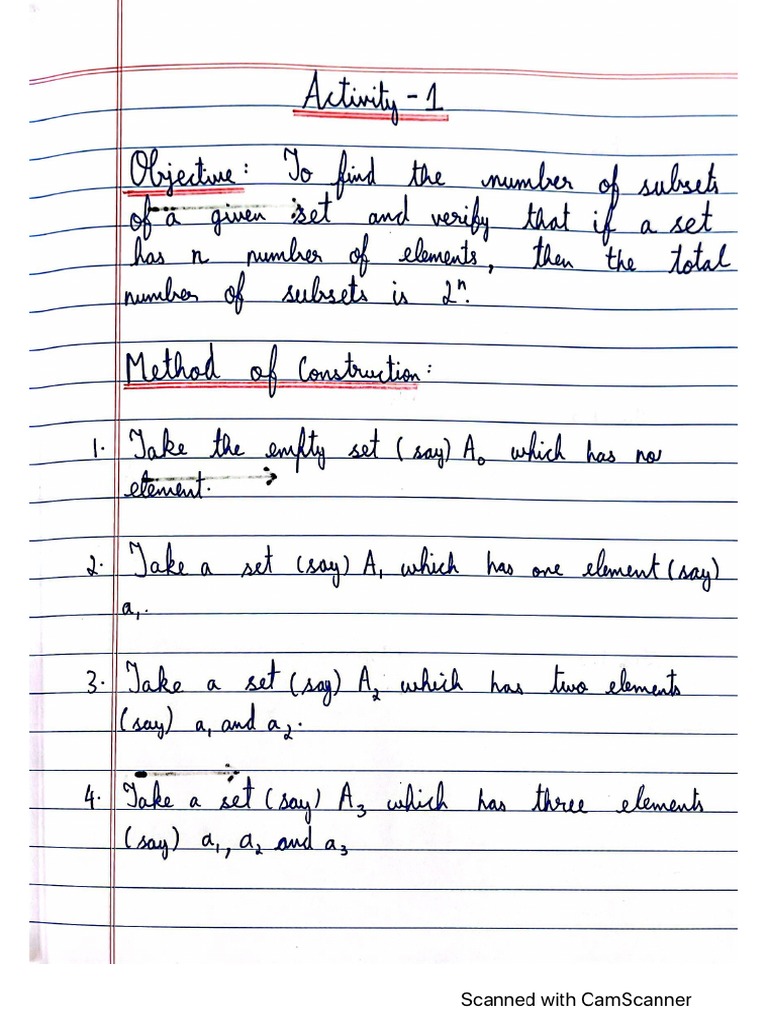 Activity - 1
Objective: To find the number of subsets
of a given set and verify that if a set
has n number of elements, then the total
number of subsets is 2ⁿ.
Method of Construction:
1. Take the empty set (say) A₀ which has no
element.
2. Take a set (say) A₁ which has one element (say)
a₁.
3. Take a set (say) A₂ which has two elements
(say) a₁ and a₂.
4. Take a set (say) A₃ which has three elements
(say) a₁, a₂ and a₃
Scanned with CamScanner